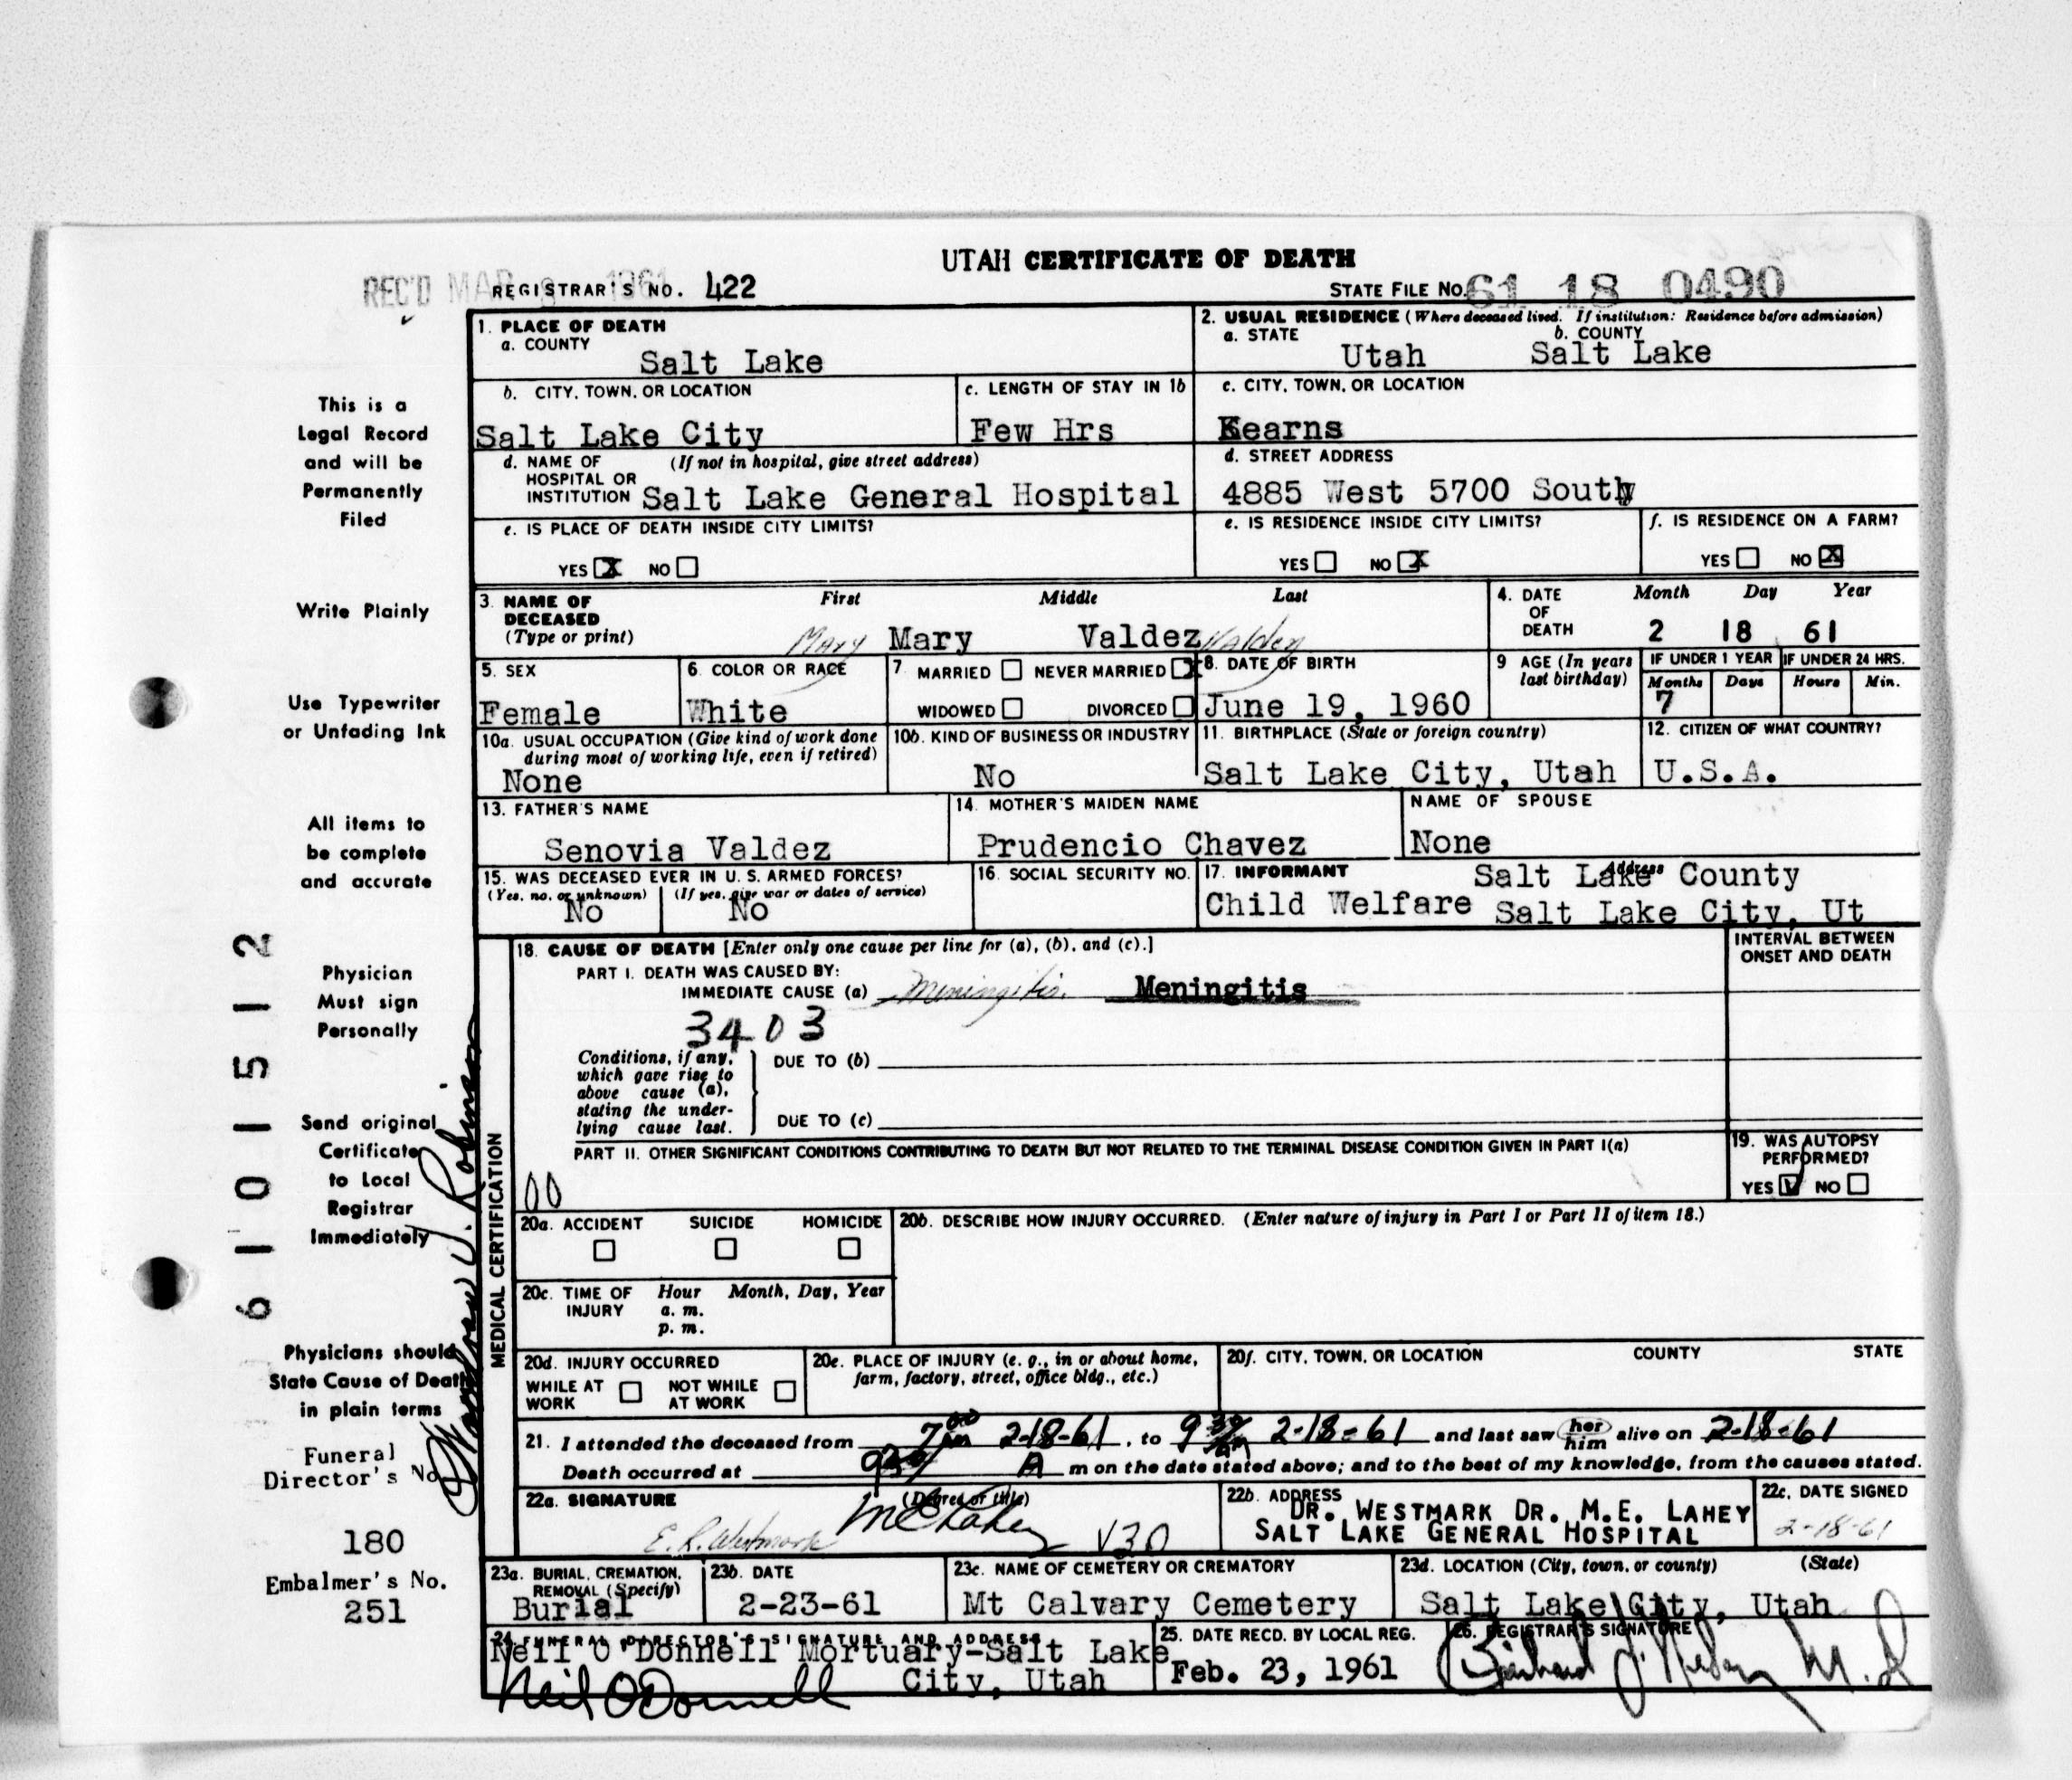 UTAH CERTIFICATE OF DEATH
REC'D MAR 1961 REGISTRAR'S NO. 422 STATE FILE NO. 61 18 0490
This is a
Legal Record
and will be
Permanently
Filed
Write Plainly
Use Typewriter
or Unfading Ink
All items to
be complete
and accurate
Physician
Must sign
Personally
Send original
Certificate
to Local
Registrar
Immediately
Physicians should
State Cause of Death
in plain terms
Funeral
Director's No
180
Embalmer's No.
251
6 1 0 1 5 1 2
J. Robinson
1. PLACE OF DEATH
a. COUNTY
Salt Lake
2. USUAL RESIDENCE (Where deceased lived. If institution: Residence before admission)
a. STATE b. COUNTY
Utah Salt Lake
b. CITY, TOWN, OR LOCATION
Salt Lake City
c. LENGTH OF STAY IN 1b
Few Hrs
c. CITY, TOWN, OR LOCATION
Kearns
d. NAME OF (If not in hospital, give street address)
HOSPITAL OR
INSTITUTION Salt Lake General Hospital
d. STREET ADDRESS
4885 West 5700 South
e. IS PLACE OF DEATH INSIDE CITY LIMITS?
YES X NO
e. IS RESIDENCE INSIDE CITY LIMITS?
YES NO X
f. IS RESIDENCE ON A FARM?
YES NO X
3. NAME OF First Middle Last
DECEASED
(Type or print) Mary Mary Valdez Valdez
4. DATE Month Day Year
OF
DEATH 2 18 61
5. SEX
Female
6. COLOR OR RACE
White
7. MARRIED NEVER MARRIED X
WIDOWED DIVORCED
8. DATE OF BIRTH
June 19, 1960
9 AGE (In years
last birthday)
IF UNDER 1 YEAR IF UNDER 24 HRS.
Months Days Hours Min.
7
10a. USUAL OCCUPATION (Give kind of work done
during most of working life, even if retired)
None
10b. KIND OF BUSINESS OR INDUSTRY
No
11. BIRTHPLACE (State or foreign country)
Salt Lake City, Utah
12. CITIZEN OF WHAT COUNTRY?
U.S.A.
13. FATHER'S NAME
Senovia Valdez
14. MOTHER'S MAIDEN NAME
Prudencio Chavez
NAME OF SPOUSE
None
15. WAS DECEASED EVER IN U. S. ARMED FORCES?
(Yes, no, or unknown) (If yes, give war or dates of service)
No No
16. SOCIAL SECURITY NO.
17. INFORMANT Address
Salt Lake County
Child Welfare Salt Lake City, Ut
MEDICAL CERTIFICATION
18. CAUSE OF DEATH [Enter only one cause per line for (a), (b), and (c).]
INTERVAL BETWEEN
ONSET AND DEATH
PART I. DEATH WAS CAUSED BY:
IMMEDIATE CAUSE (a) Meningitis. Meningitis
3403
Conditions, if any,
which gave rise to
above cause (a),
stating the under-
lying cause last.
DUE TO (b)
DUE TO (c)
PART II. OTHER SIGNIFICANT CONDITIONS CONTRIBUTING TO DEATH BUT NOT RELATED TO THE TERMINAL DISEASE CONDITION GIVEN IN PART I(a)
00
19. WAS AUTOPSY
PERFORMED?
YES NO
20a. ACCIDENT SUICIDE HOMICIDE
20b. DESCRIBE HOW INJURY OCCURRED. (Enter nature of injury in Part I or Part II of item 18.)
20c. TIME OF Hour Month, Day, Year
INJURY a. m.
p. m.
20d. INJURY OCCURRED
WHILE AT NOT WHILE
WORK AT WORK
20e. PLACE OF INJURY (e. g., in or about home,
farm, factory, street, office bldg., etc.)
20f. CITY, TOWN, OR LOCATION COUNTY STATE
21. I attended the deceased from 7 00 am 2-18-61, to 9 30 am 2-18-61 and last saw her him alive on 2-18-61
Death occurred at 9 30 A m on the date stated above; and to the best of my knowledge, from the causes stated.
22a. SIGNATURE (Degree or title)
E. R. Westmark M E Lahey V30
22b. ADDRESS
DR. WESTMARK DR. M.E. LAHEY
SALT LAKE GENERAL HOSPITAL
22c. DATE SIGNED
2-18-61
23a. BURIAL, CREMATION,
REMOVAL (Specify)
Burial
23b. DATE
2-23-61
23c. NAME OF CEMETERY OR CREMATORY
Mt Calvary Cemetery
23d. LOCATION (City, town, or county) (State)
Salt Lake City, Utah
24. FUNERAL DIRECTOR'S SIGNATURE AND ADDRESS
Neil O'Donnell Mortuary-Salt Lake
City, Utah
Neil O'Donnell
25. DATE RECD. BY LOCAL REG.
Feb. 23, 1961
26. REGISTRAR'S SIGNATURE
M.D